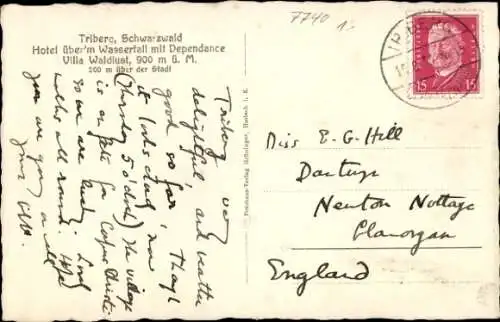 Triberg, Schwarzwald
Hotel über'm Wasserfall mit Dependance
Villa Waldlust, 900 m ü. M.
200 m über der Stadt
7740
Triberg very
delightful, and weather
good so far, though
it looks dull now
(Thursday 5 o'clock) The village
is en fête for Corpus Christi
so we are lucky. Love
to all round. Hope
you are going on well
Yours
15
15
Miss E. G. Hill
Newton Nottage
Glamorgan
England